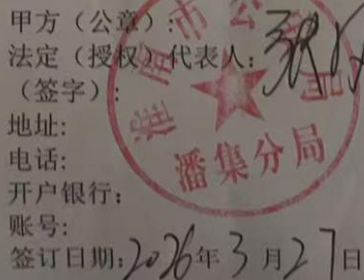 甲方（公章）：
法定（授权）代表人：
（签字）：
地址:
电话:
开户银行：
账号:
签订日期:2026年3月27日
淮南市公
局
潘集分局